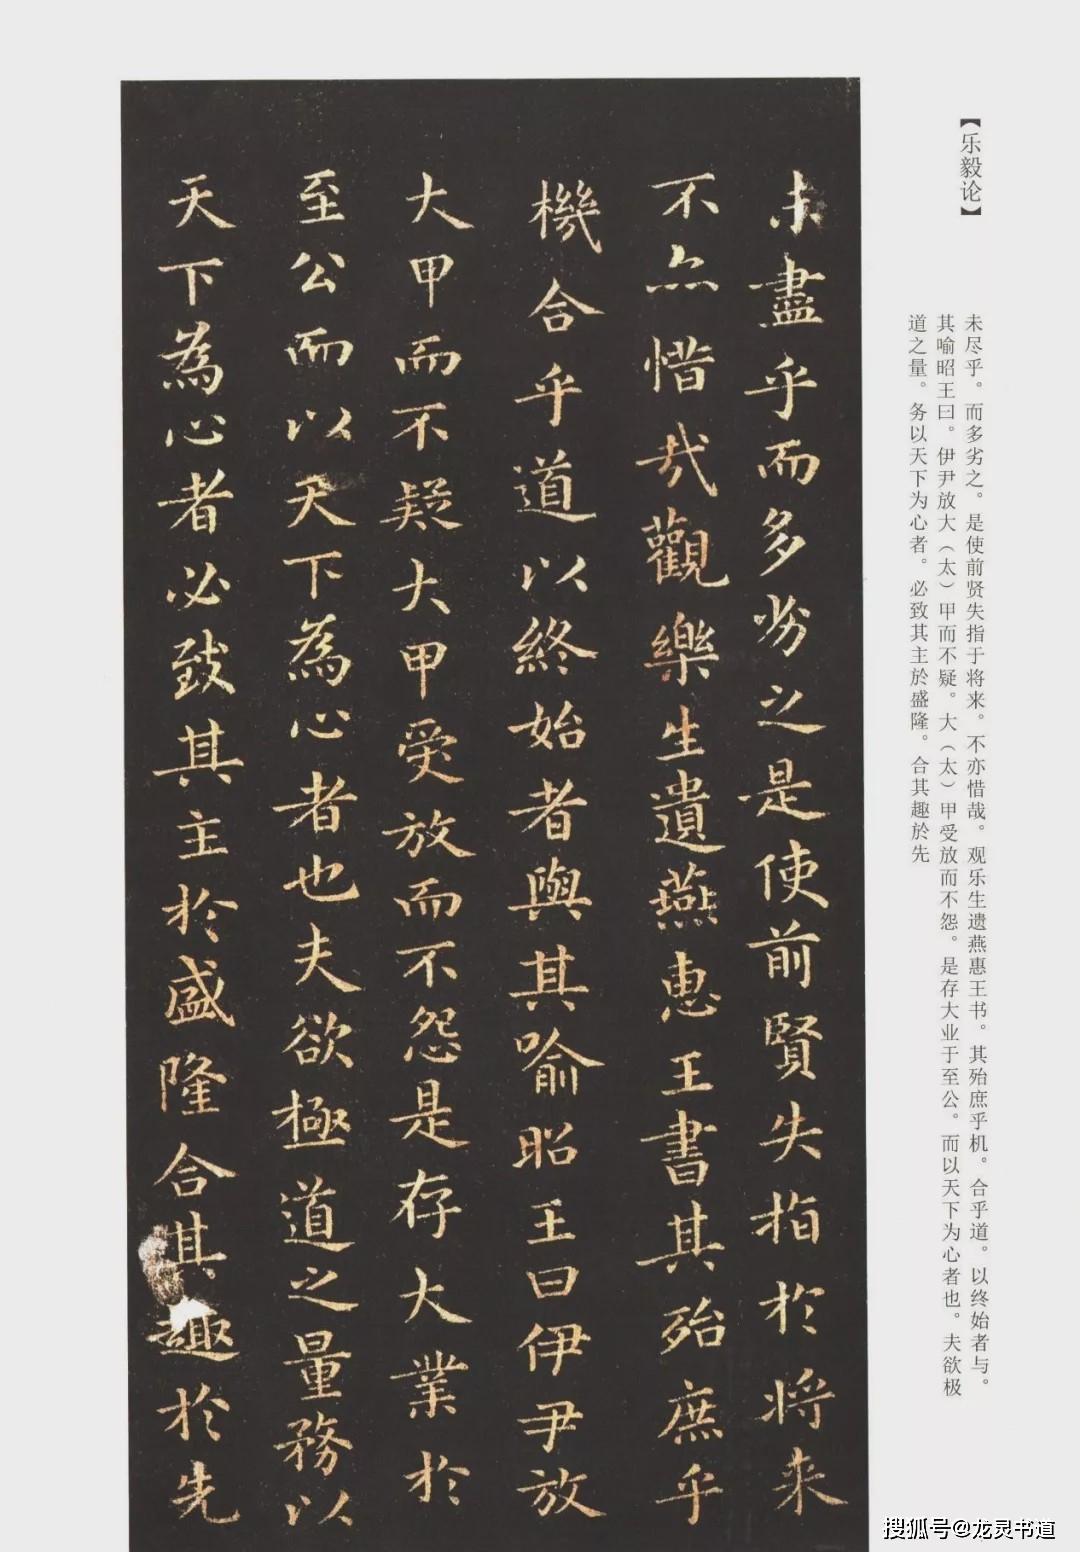 【乐毅论】
未尽乎。而多劣之。是使前贤失指于将来。不亦惜哉。观乐生遗燕惠王书。其殆庶乎机。合乎道。以终始者与。
其喻昭王曰。伊尹放大（太）甲而不疑。大（太）甲受放而不怨。是存大业于至公。而以天下为心者也。夫欲极
道之量。务以天下为心者。必致其主於盛隆。合其趣於先
未盡乎而多劣之是使前賢失指於将来
不亦惜哉觀樂生遺燕惠王書其殆庶乎
機合乎道以終始者與其喻昭王曰伊尹放
大甲而不疑大甲受放而不怨是存大業於
至公而以天下為心者也夫欲極道之量務以
天下為心者必致其主於盛隆合其趣於先
搜狐号@龙灵书道